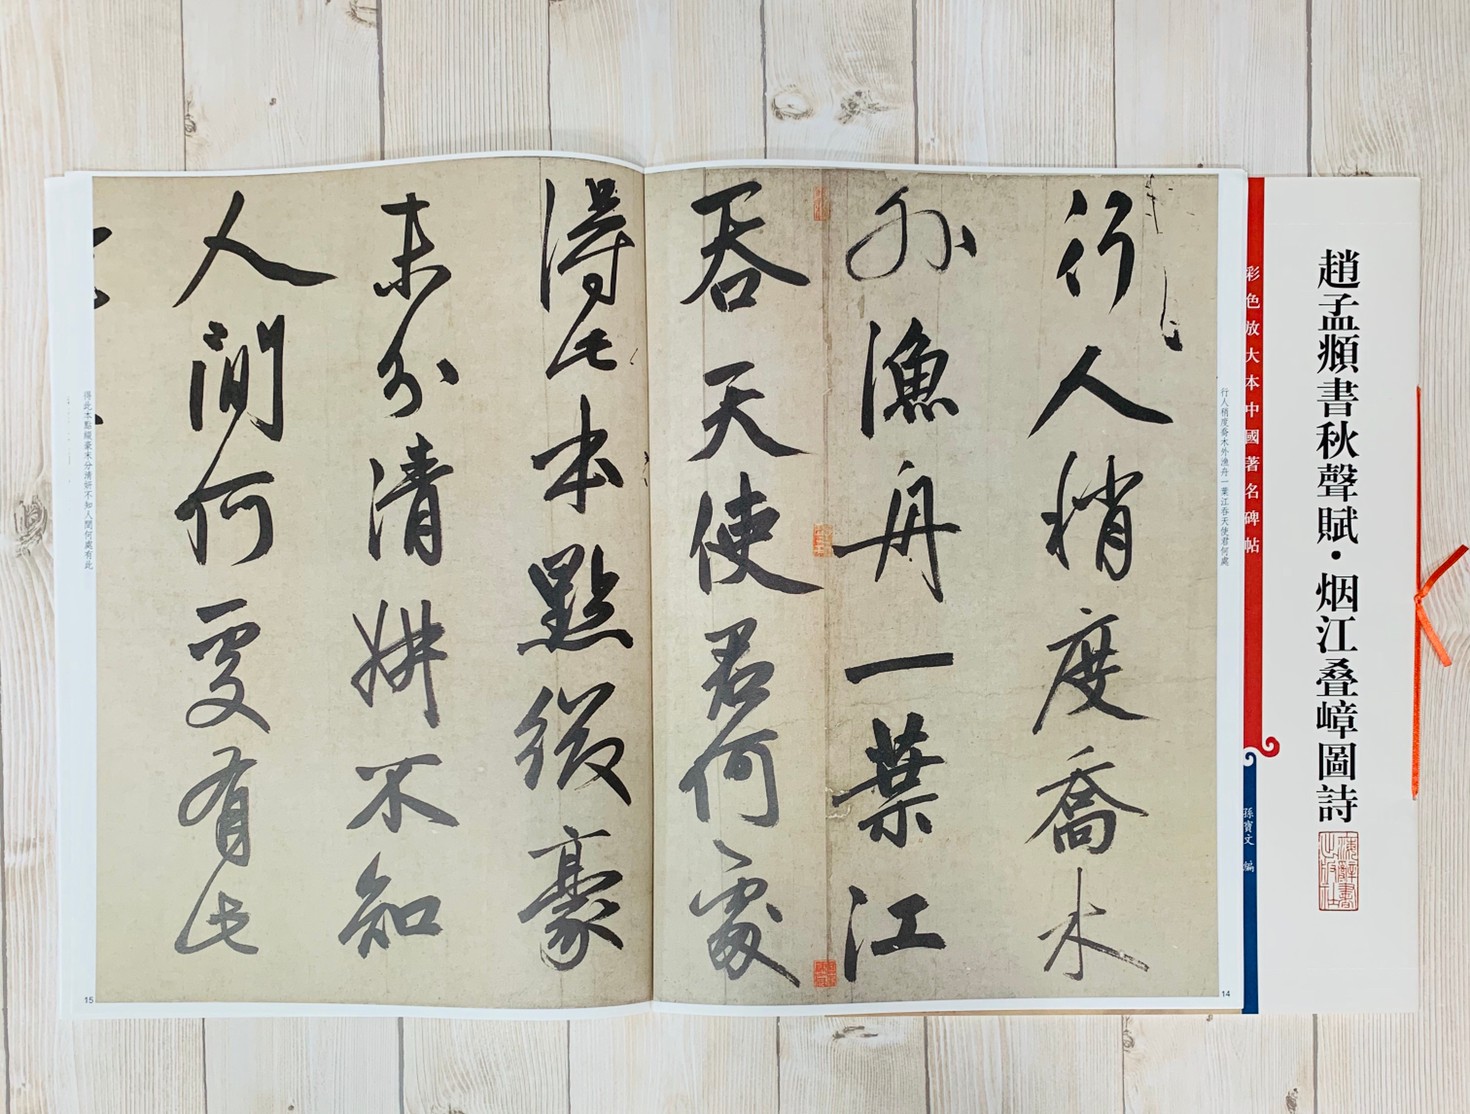 趙孟頫書秋聲賦・烟江叠嶂圖詩
彩色放大本中國著名碑帖
孫寶文 編
行人稍度喬木外漁舟一葉江吞天使君何處
14
行人稍度喬木
外漁舟一葉江
吞天使君何處
得此本點綴豪
末分清妍不知
人間何處有此
得此本點綴豪末分清妍不知人間何處有此
15